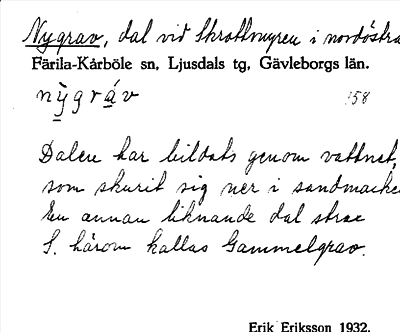 Nygrav, dal vid Skrattmyren i nordöstra
Färila-Kårböle sn, Ljusdals tg, Gävleborgs län.
nỳgráv
158
Dalen har bildats genom vattnet,
som skurit sig ner i sandmarken
En annan liknande dal strax
S. härom kallas Gammelgrav.
Erik Eriksson 1932.